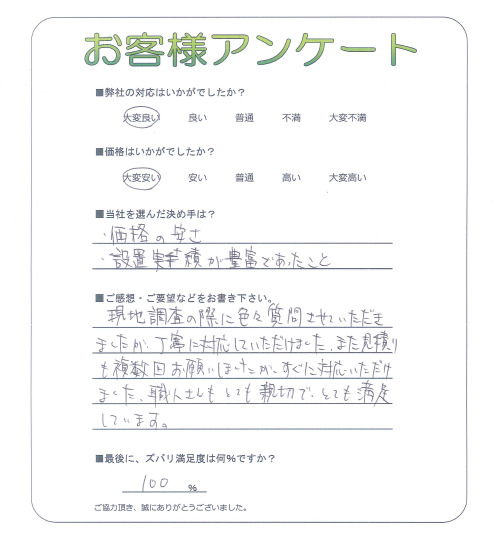 お客様アンケート
■弊社の対応はいかがでしたか?
大変良い 良い 普通 不満 大変不満
■価格はいかがでしたか?
大変安い 安い 普通 高い 大変高い
■当社を選んだ決め手は?
・価格の安さ
・設置実績が豊富であたこと
■ご感想・ご要望などをお書き下さい。
現地調査の際に色々質問させていただき
ましたが、丁寧に対応していただけました。また見積り
も複数回お願いしましたが、すぐに対応いただけ
ました。職人さんも とても 親切で、とても 満足
しています。
■最後に、ズバリ満足度は何%ですか?
100 %
ご協力頂き、誠にありがとうございました。